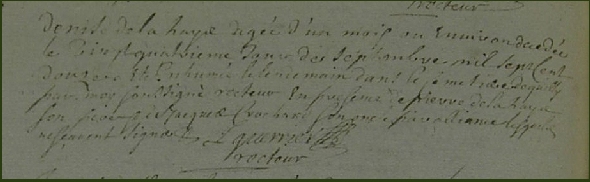 recteur
denise de la haye agée d'un mois ou Environ decedée
le vingt quatrieme Jour de septembre mil sept Cent
douze Et Enhumé le lendemain dans le Cimetiere
par moy soussigné recteur En presence de pierre de la haye
son pere et de Jacques son oncle lesquels
ne sçavent signer
recteur